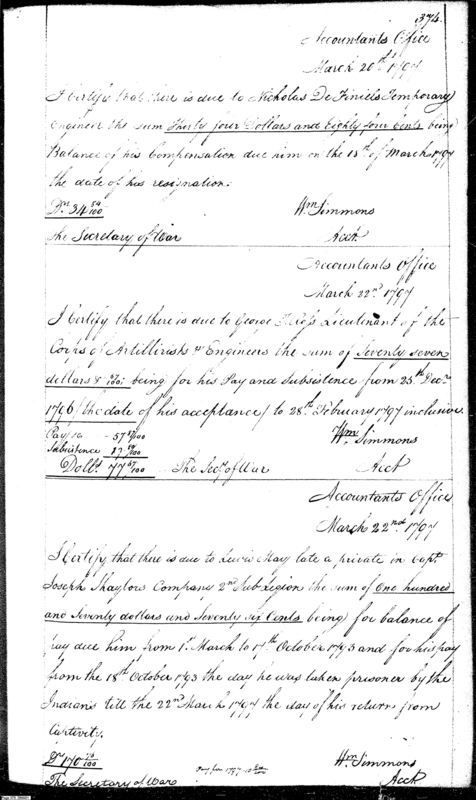 374.
Accountants Office
March 20th 1797
I Certify that there is due to Nicholas De Finiels Temporary
Engineer the sum Thirty four Dollars and Eighty four Cents being
Balance of his Compensation due him on the 18th of March 1797
the date of his resignation.
Drs 34 84/100 Wm Simmons
The Secretary of War Acct
Accountants Office
March 22nd 1797
I Certify that there is due to George Ross Lieutenant of the
Corps of Artillirists & Engineers the sum of Seventy seven
dollars & 67/100 being for his Pay and Subsistence from 25th Decr
1796 /the date of his acceptance/ to 28th February 1797 inclusive
Pay - 57
Subsistence
Dolls 77 67/100 The Secy of War Wm Simmons
Acct
Accountants Office
March 22nd 1797
I Certify that there is due to Lewis May late a private in Capt
Joseph Shaylors Company 2nd Sub Legion the sum of One hundred
and Seventy dollars and Seventy six Cents being for balance of
pay due him from 1st March to 17th October 1793 and for his pay
from the 18th October 1793 the day he was taken prisoner by the
Indians till the 22nd March 1797 the day of his return from
Captivity.
Drs 170 76/100 Pay for 1797 Wm Simmons
The Secretary of War Acct